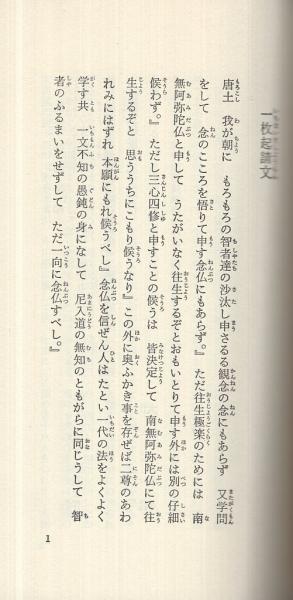 一枚起請文
唐土 我が朝に もろもろの智者達の沙汰し申さるる観念の念にもあらず 又学問
をして 念のこころを悟りて申す念仏にもあらず。』 ただ往生極楽のためには 南
無阿弥陀仏と申して うたがいなく往生するぞとおもいとりて申す外には別の仔細
候わず。』 ただし三心四修と申すことの候うは 皆決定して 南無阿弥陀仏にて往
生するぞと 思ううちにこもり候うなり』 この外に奥ふかき事を存ぜば二尊のあわ
れみにはずれ 本願にもれ候うべし』 念仏を信ぜん人はたとい一代の法をよくよく
学す共 一文不知の愚鈍の身になして 尼入道の無知のともがらに同じうして 智
者のふるまいをせずして ただ一向に念仏すべし。』
1